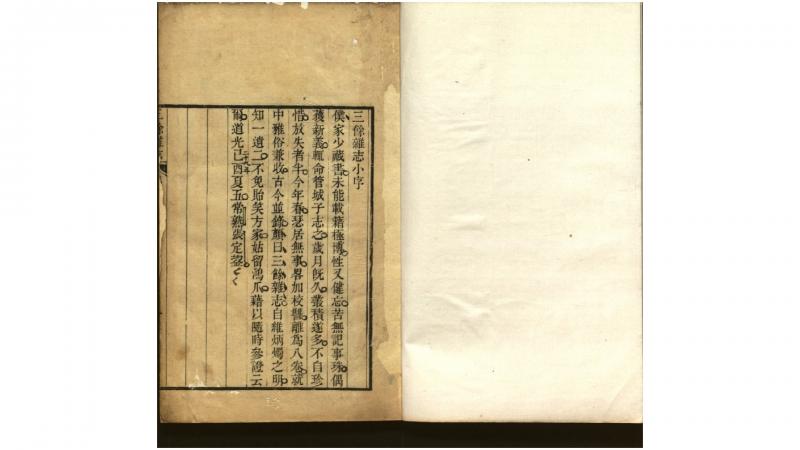 三餘雜志小序
僕家少藏書未能載籍極博性又健忘苦無記事珠偶
獲新義輒命管城子志之歲月旣久叢積遂多不自珍
惜放失者半今年春瑟居無事畧加校讐離爲八卷就
中雅俗兼收古今並錄顏曰三餘雜志自維炳燭之明
知一遺二不免貽笑方家姑留鴻爪藉以隨時參證云
爾道光己酉夏五常熟裴定
三餘雜志